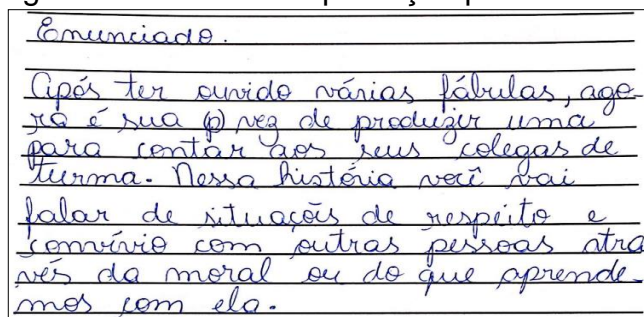 Enunciado.
Após ter ouvido várias fábulas, ago-
ra é sua (p) vez de produzir uma
para contar aos seus colegas de
turma. Nessa história você vai
falar de situaçõis de respeito e
convívio com outras pessoas atra
vés da moral ou do que aprende-
mos com ela.